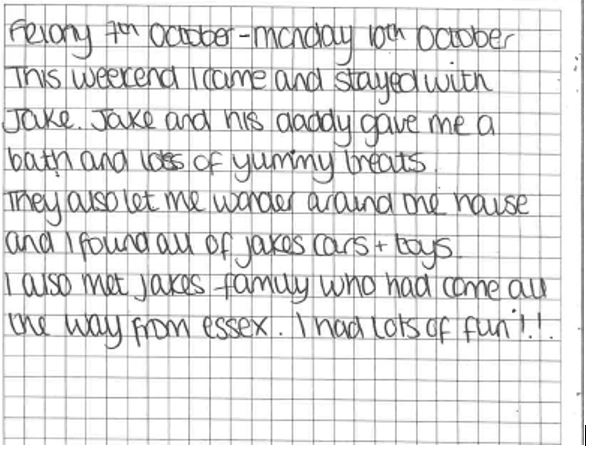 Felony 7th October - monday 10th October
This weekend I came and stayed with
Jake. Jake and his daddy gave me a
bath and lots of yummy treats.
They also let me wonder around the house
and I found all of jakes cars + toys.
I also met jakes family who had come all
the way from essex. I had lots of fun!!.